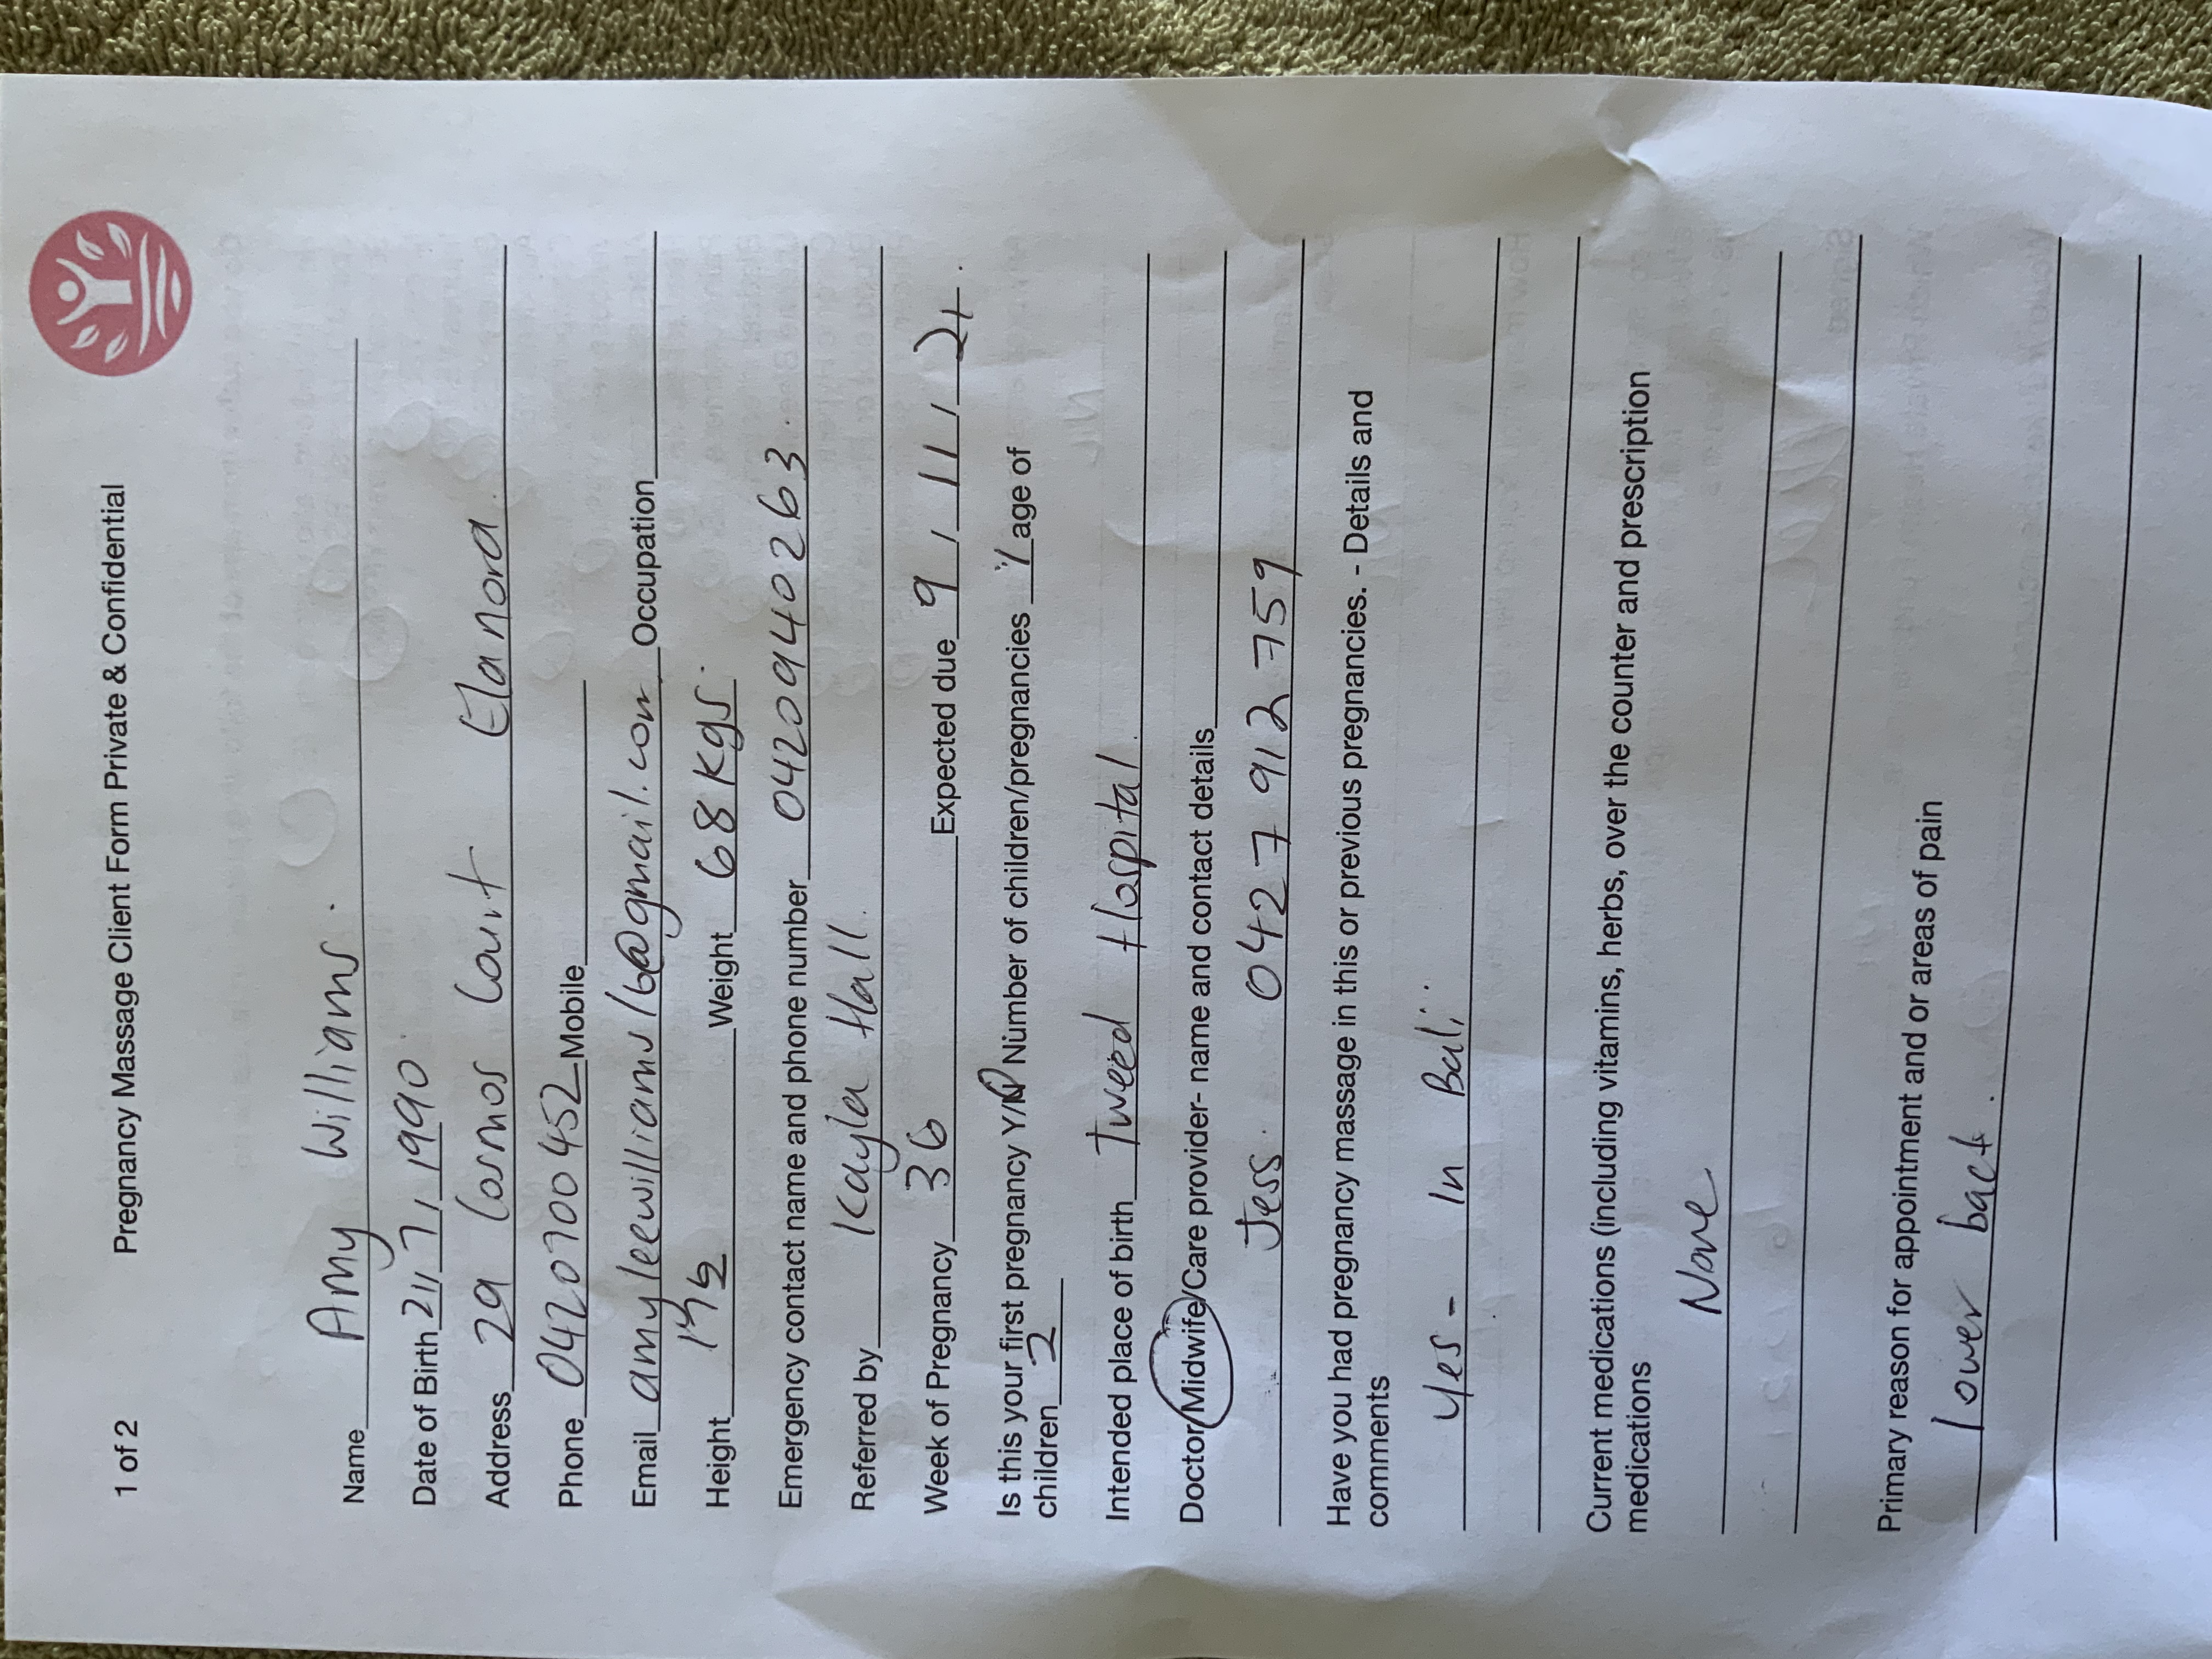 1 of 2 Pregnancy Massage Client Form Private & Confidential
Name Amy Williams.
Date of Birth 21/7/1990
Address 29 Cosmos Court Elanora
Phone 0420700452 Mobile
Email amyleewilliams16@gmail.com Occupation
Height Weight 68 kgs.
Emergency contact name and phone number 0420940263.
Referred by Kayla Hall.
Week of Pregnancy 36 Expected due 9/11/21.
Is this your first pregnancy Y/N Number of children/pregnancies 1 age of
children 2
Intended place of birth Tweed Hospital.
Doctor/Midwife/Care provider- name and contact details
Jess. 0427 912 759
Have you had pregnancy massage in this or previous pregnancies. - Details and
comments
Yes - In Bali.
Current medications (including vitamins, herbs, over the counter and prescription
medications
None
Primary reason for appointment and or areas of pain
lower back.